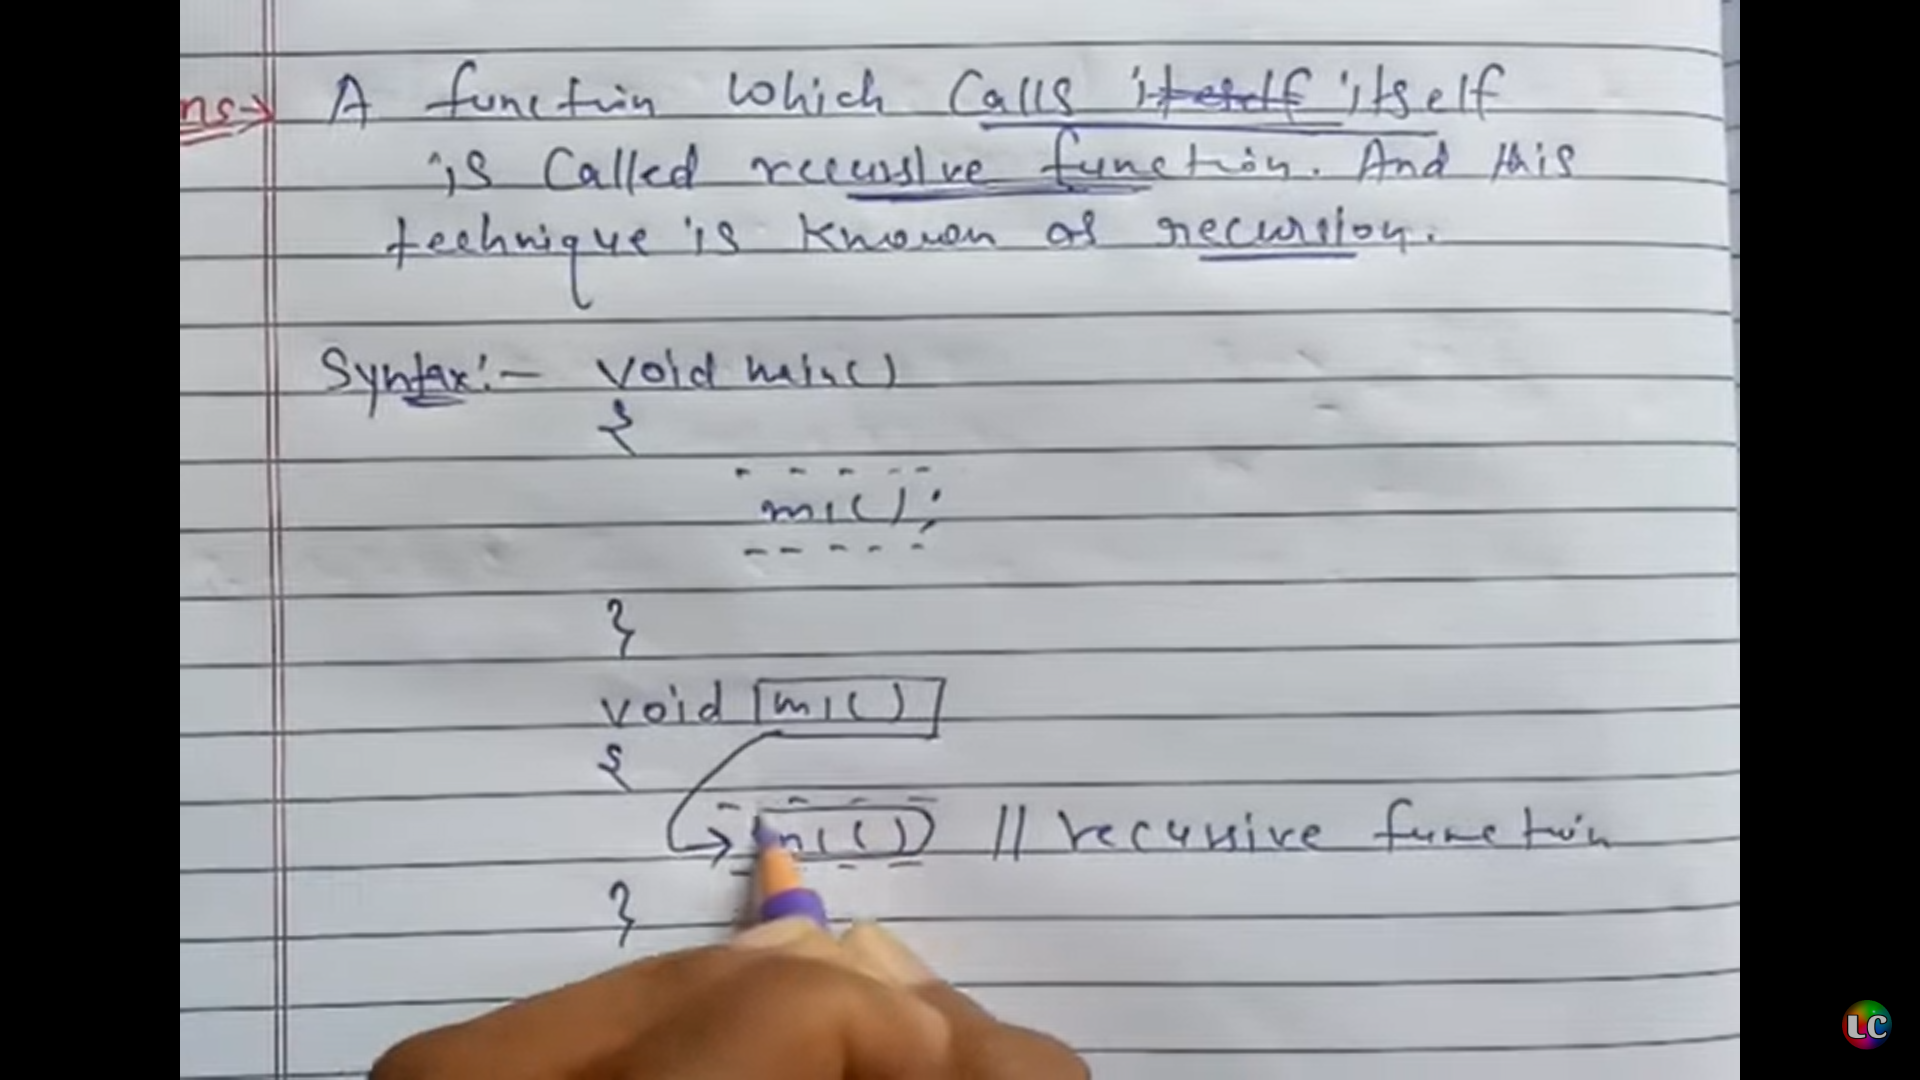 ns→ A function which calls itself itself
is called recursive function. And this
technique is known as recursion.
Syntax:- void main()
{
m1();
}
void m1()
{
m1() // recursive function
}
LC